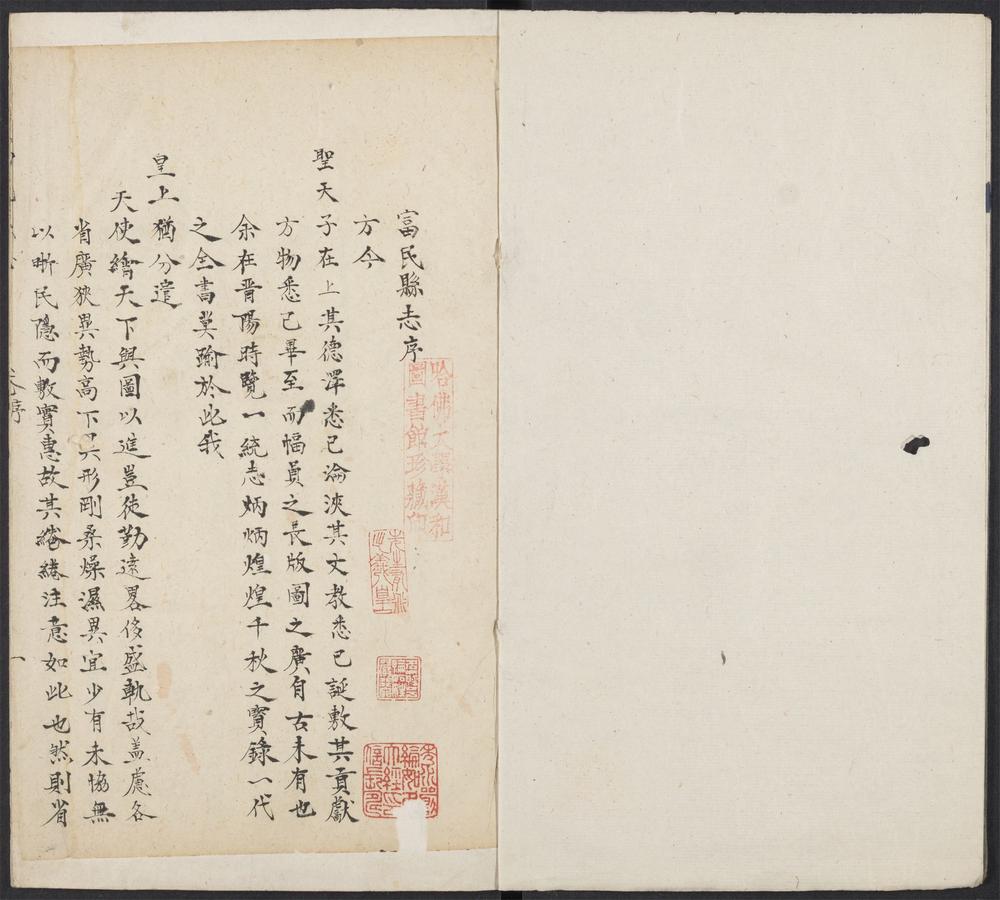 富民縣志序
方今
聖天子在上其德澤悉已淪浹其文教悉已誕敷其貢獻
方物悉已畢至而幅員之長版圖之廣自古未有也
余在晋陽時覽一統志炳炳煌煌千秋之寳錄一代
之全書莫踰於此我
皇上猶分遣
天使繪天下輿圖以進豈徒勤遠畧侈盛軌哉盖慮各
省廣狹異勢高下異形剛柔燥濕異宜少有未協無
以晰民隱而敷實惠故其綣綣注意如此也然則省
哈佛大學漢和
圖書館珍藏印
序
一